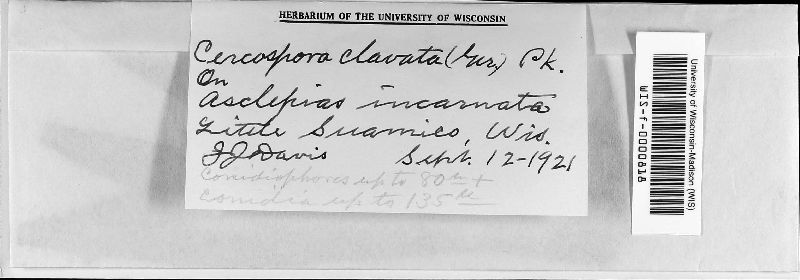 HERBARIUM OF THE UNIVERSITY OF WISCONSIN
Cercospora clavata (Ger.) Pk.
On
Asclepias incarnata
Little Suamico, Wis.
JJ Davis Sept. 12-1921
Conidiophores up to 80 µ +
Conidia up to 135 µ
University of Wisconsin-Madison (WIS)
WIS-f-0000818